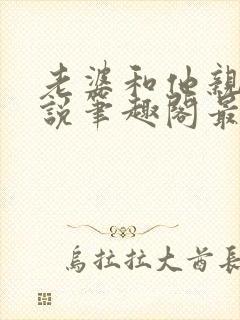 老婆和他親
説筆趣閣最
烏拉拉大酋長